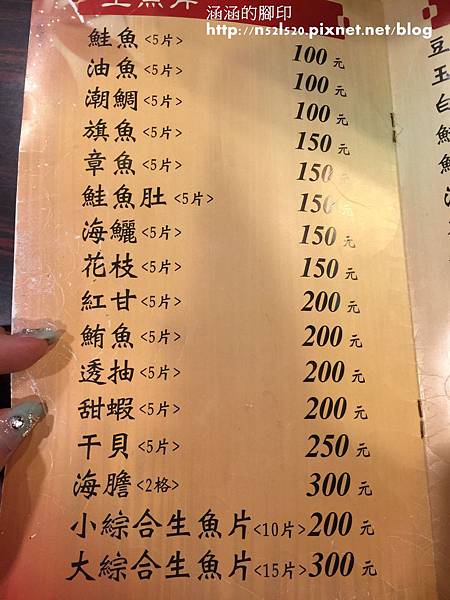 涵涵的腳印
http://n521520.pixnet.net/blog
生魚片
鮭魚<5片> 100元
油魚<5片> 100元
潮鯛<5片> 100元
旗魚<5片> 150元
章魚<5片> 150元
鮭魚肚<5片> 150元
海鱺<5片> 150元
花枝<5片> 150元
紅甘<5片> 200元
鮪魚<5片> 200元
透抽<5片> 200元
甜蝦<5片> 200元
干貝<5片> 250元
海膽<2格> 300元
小綜合生魚片<10片> 200元
大綜合生魚片<15片> 300元
豆
玉
白